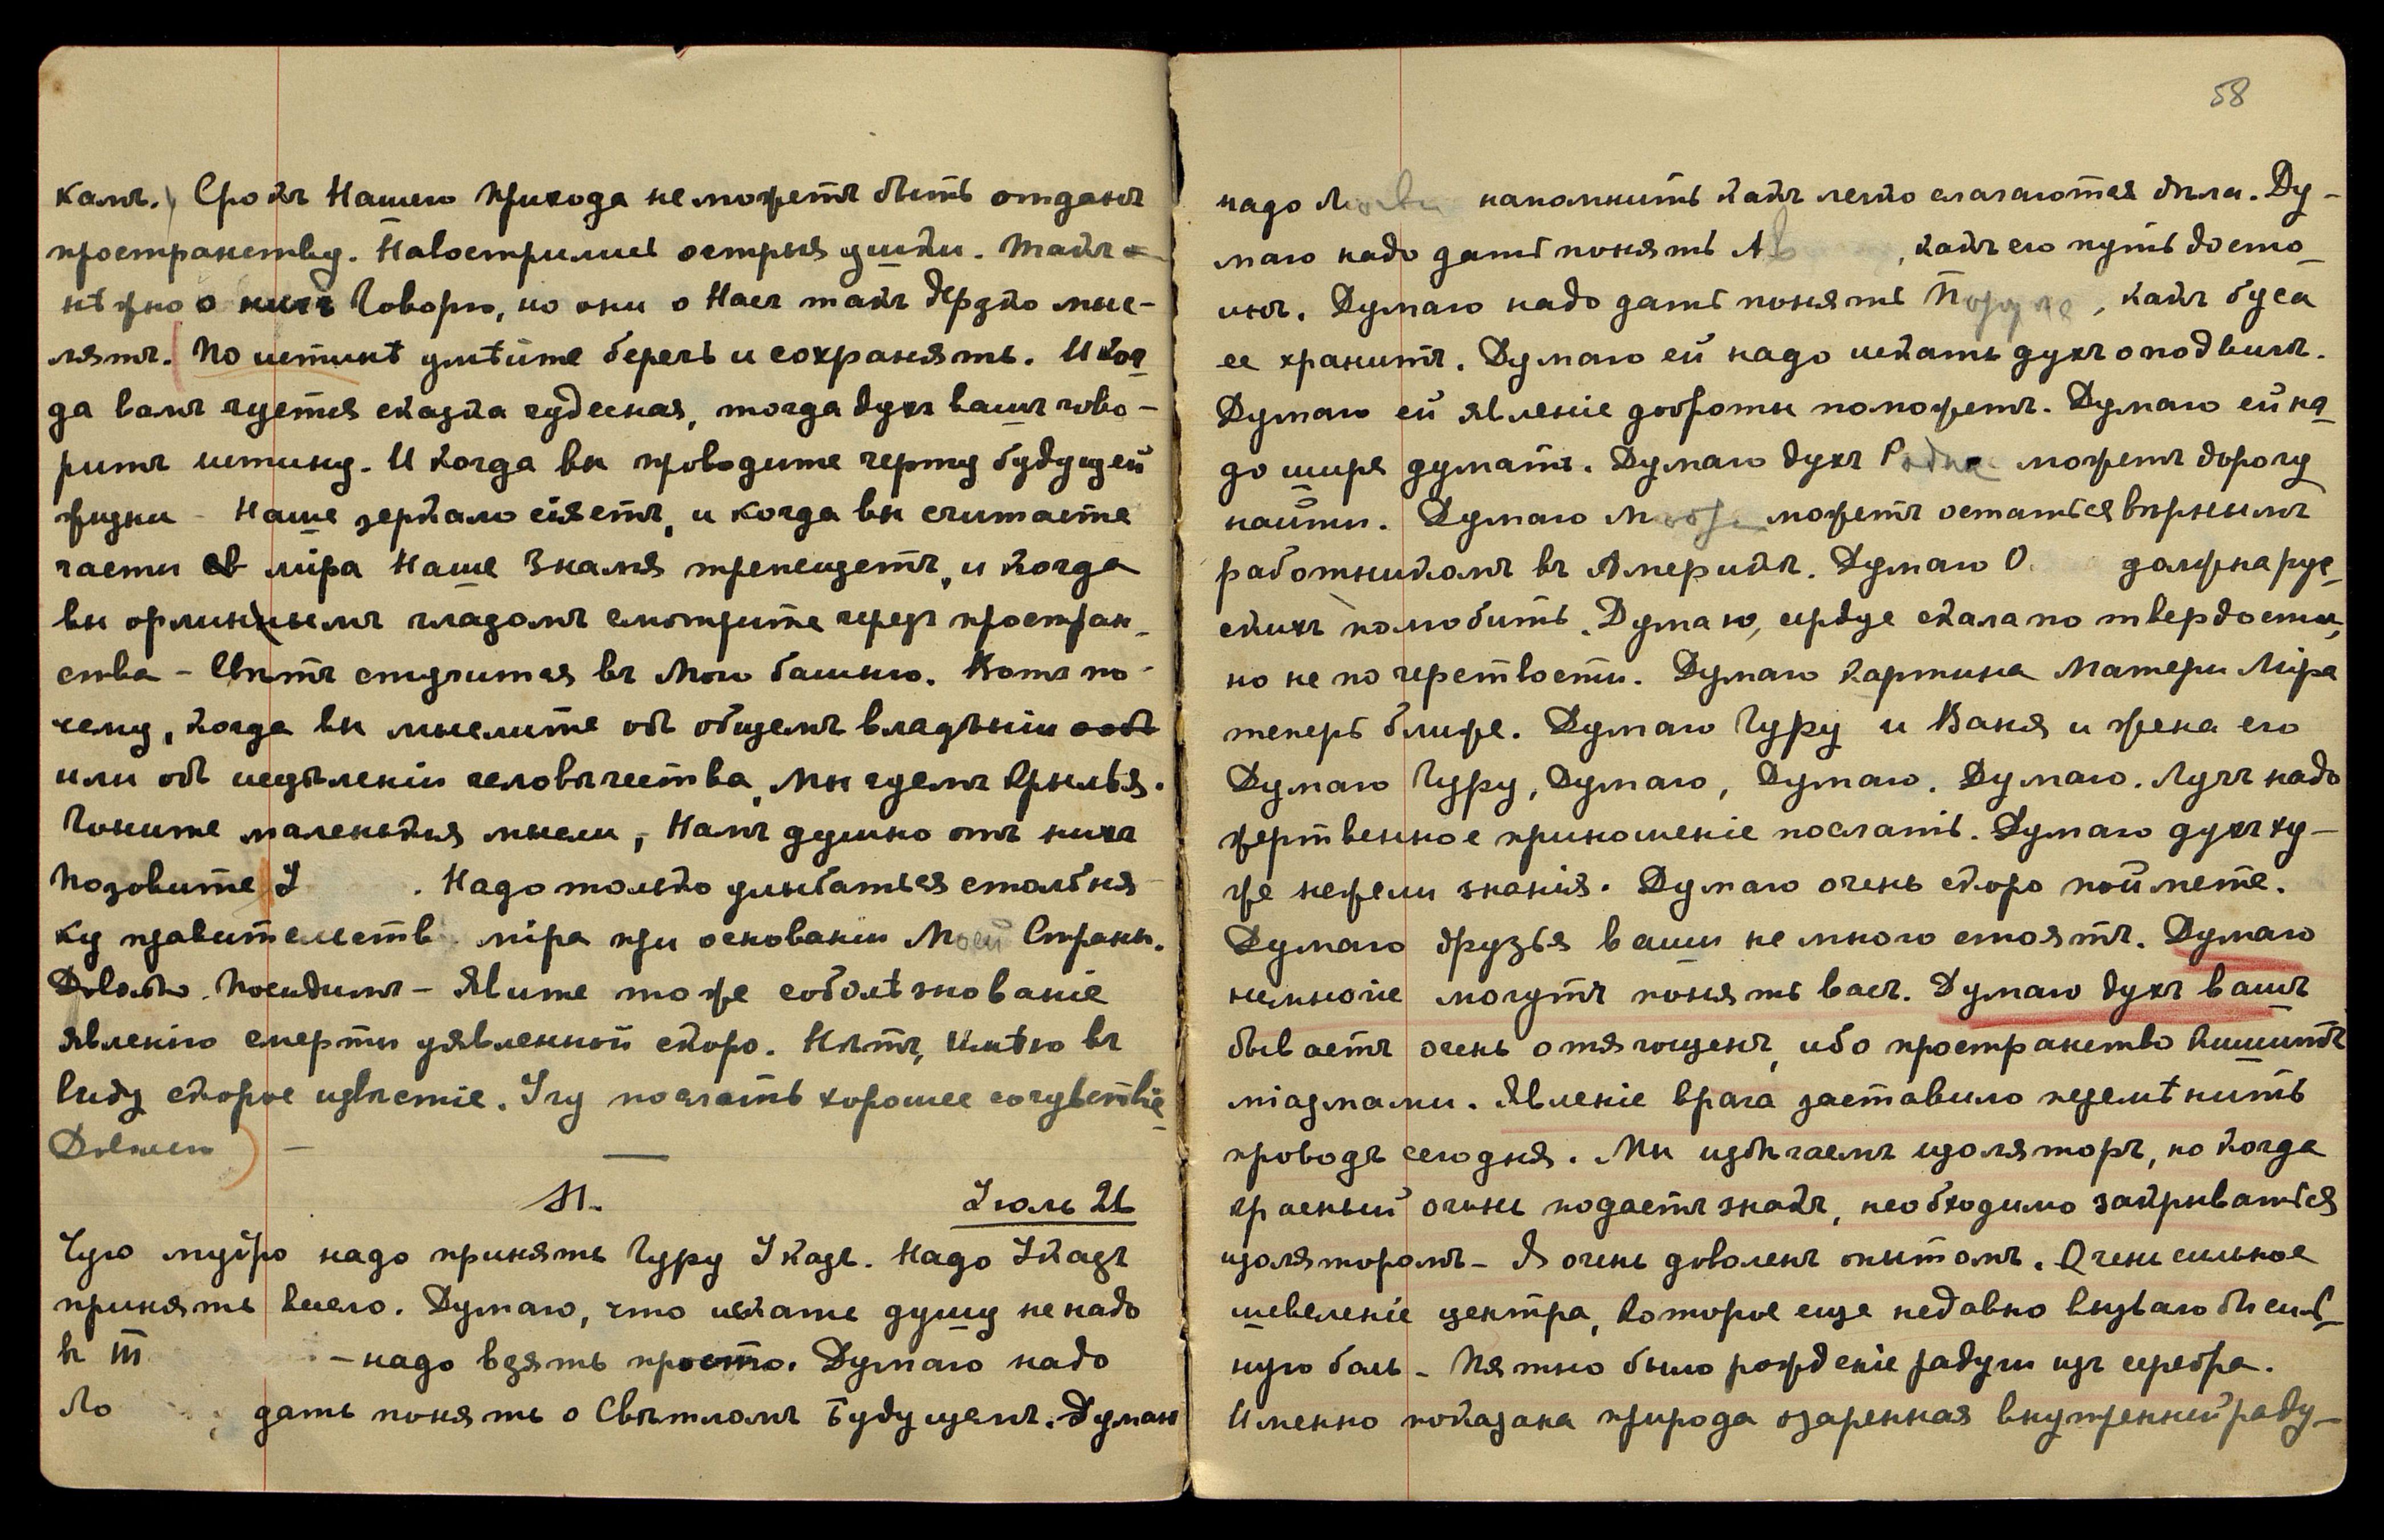 камъ. Срокъ Нашего Прихода не можетъ быть отданъ
пространству. Навострились острыя ушки. Такъ
нѣжно о нихъ Говорю, но они о Насъ такъ дерзко мыс-
лятъ. По истинѣ умѣйте беречь и сохранять. И ког-
да вамъ чуется сказка чудесная, тогда духъ вашъ гово-
ритъ истину. И когда вы проводите черту будущей
жизни - Наше зеркало сіяетъ, и когда вы считаете
части міра Наше Знамя трепещетъ, и когда
вы орлинымъ глазомъ смотрите черезъ простран-
ства - Свѣтъ стучится въ Мою башню. Вотъ по-
чему, когда вы мыслите объ общемъ владѣніи
или объ исцѣленіи человѣчества, Мы чуемъ Крылья.
Гоните маленькія мысли, Намъ душно отъ нихъ
Позовите . Надо только улыбаться столбня-
ку правительствъ міра при основаніи Моей Страны.
Довольно. Посидимъ - Явите тоже соболѣзнованіе
явленію смерти уявленной скоро. Нѣтъ, Имѣю въ
виду скорое извѣстіе. Учу послать хорошее сочувствіе
Довольно —
М. Іюль 21
Чую мудро надо принять Гуру Указъ. Надо Указъ
принять весело. Думаю, что искать душу не надо
въ - надо взять просто. Думаю надо
Ло дать понять о Свѣтломъ Будущемъ. Думаю
58
надо напомнить какъ легко слагаются дѣла. Ду-
маю надо дать понять , какъ его путь досто-
инъ. Думаю надо дать понять , какъ Будда
ее хранитъ. Думаю ей надо искать духъ о подвигѣ.
Думаю ей явленіе доброты поможетъ. Думаю ей на-
до шире думать. Думаю духъ можетъ дорогу
найти. Думаю можетъ остаться вѣрнымъ
работникомъ въ Америкѣ. Думаю О должна рус-
скихъ полюбить. Думаю, сердце скала по твердости,
но не по черствости. Думаю картина Матери Міра
теперь ближе. Думаю Гуру и Ваня и жена его
Думаю Гуру, Думаю, Думаю, Думаю. Лучъ надо
жертвенное приношеніе послать. Думаю духъ ху-
же нежели знанія. Думаю очень скоро поймете.
Думаю друзья ваши не много стоятъ. Думаю
немногіе могутъ понять васъ. Думаю духъ вашъ
бываетъ очень отягощенъ, ибо пространство кишитъ
міазмами. Явленіе врага заставило перемѣнить
проводъ сегодня. Мы избѣгаемъ изоляторъ, но когда
красный огонь подаетъ знакъ, необходимо закрываться
изоляторомъ - Я очень доволенъ опытомъ. Очень сильное
шевеленіе центра, которое еще недавно вызвало бы силь-
ную боль - Пятно было рожденіе радуги изъ серебра.
Именно показана природа озаренная внутренней раду-